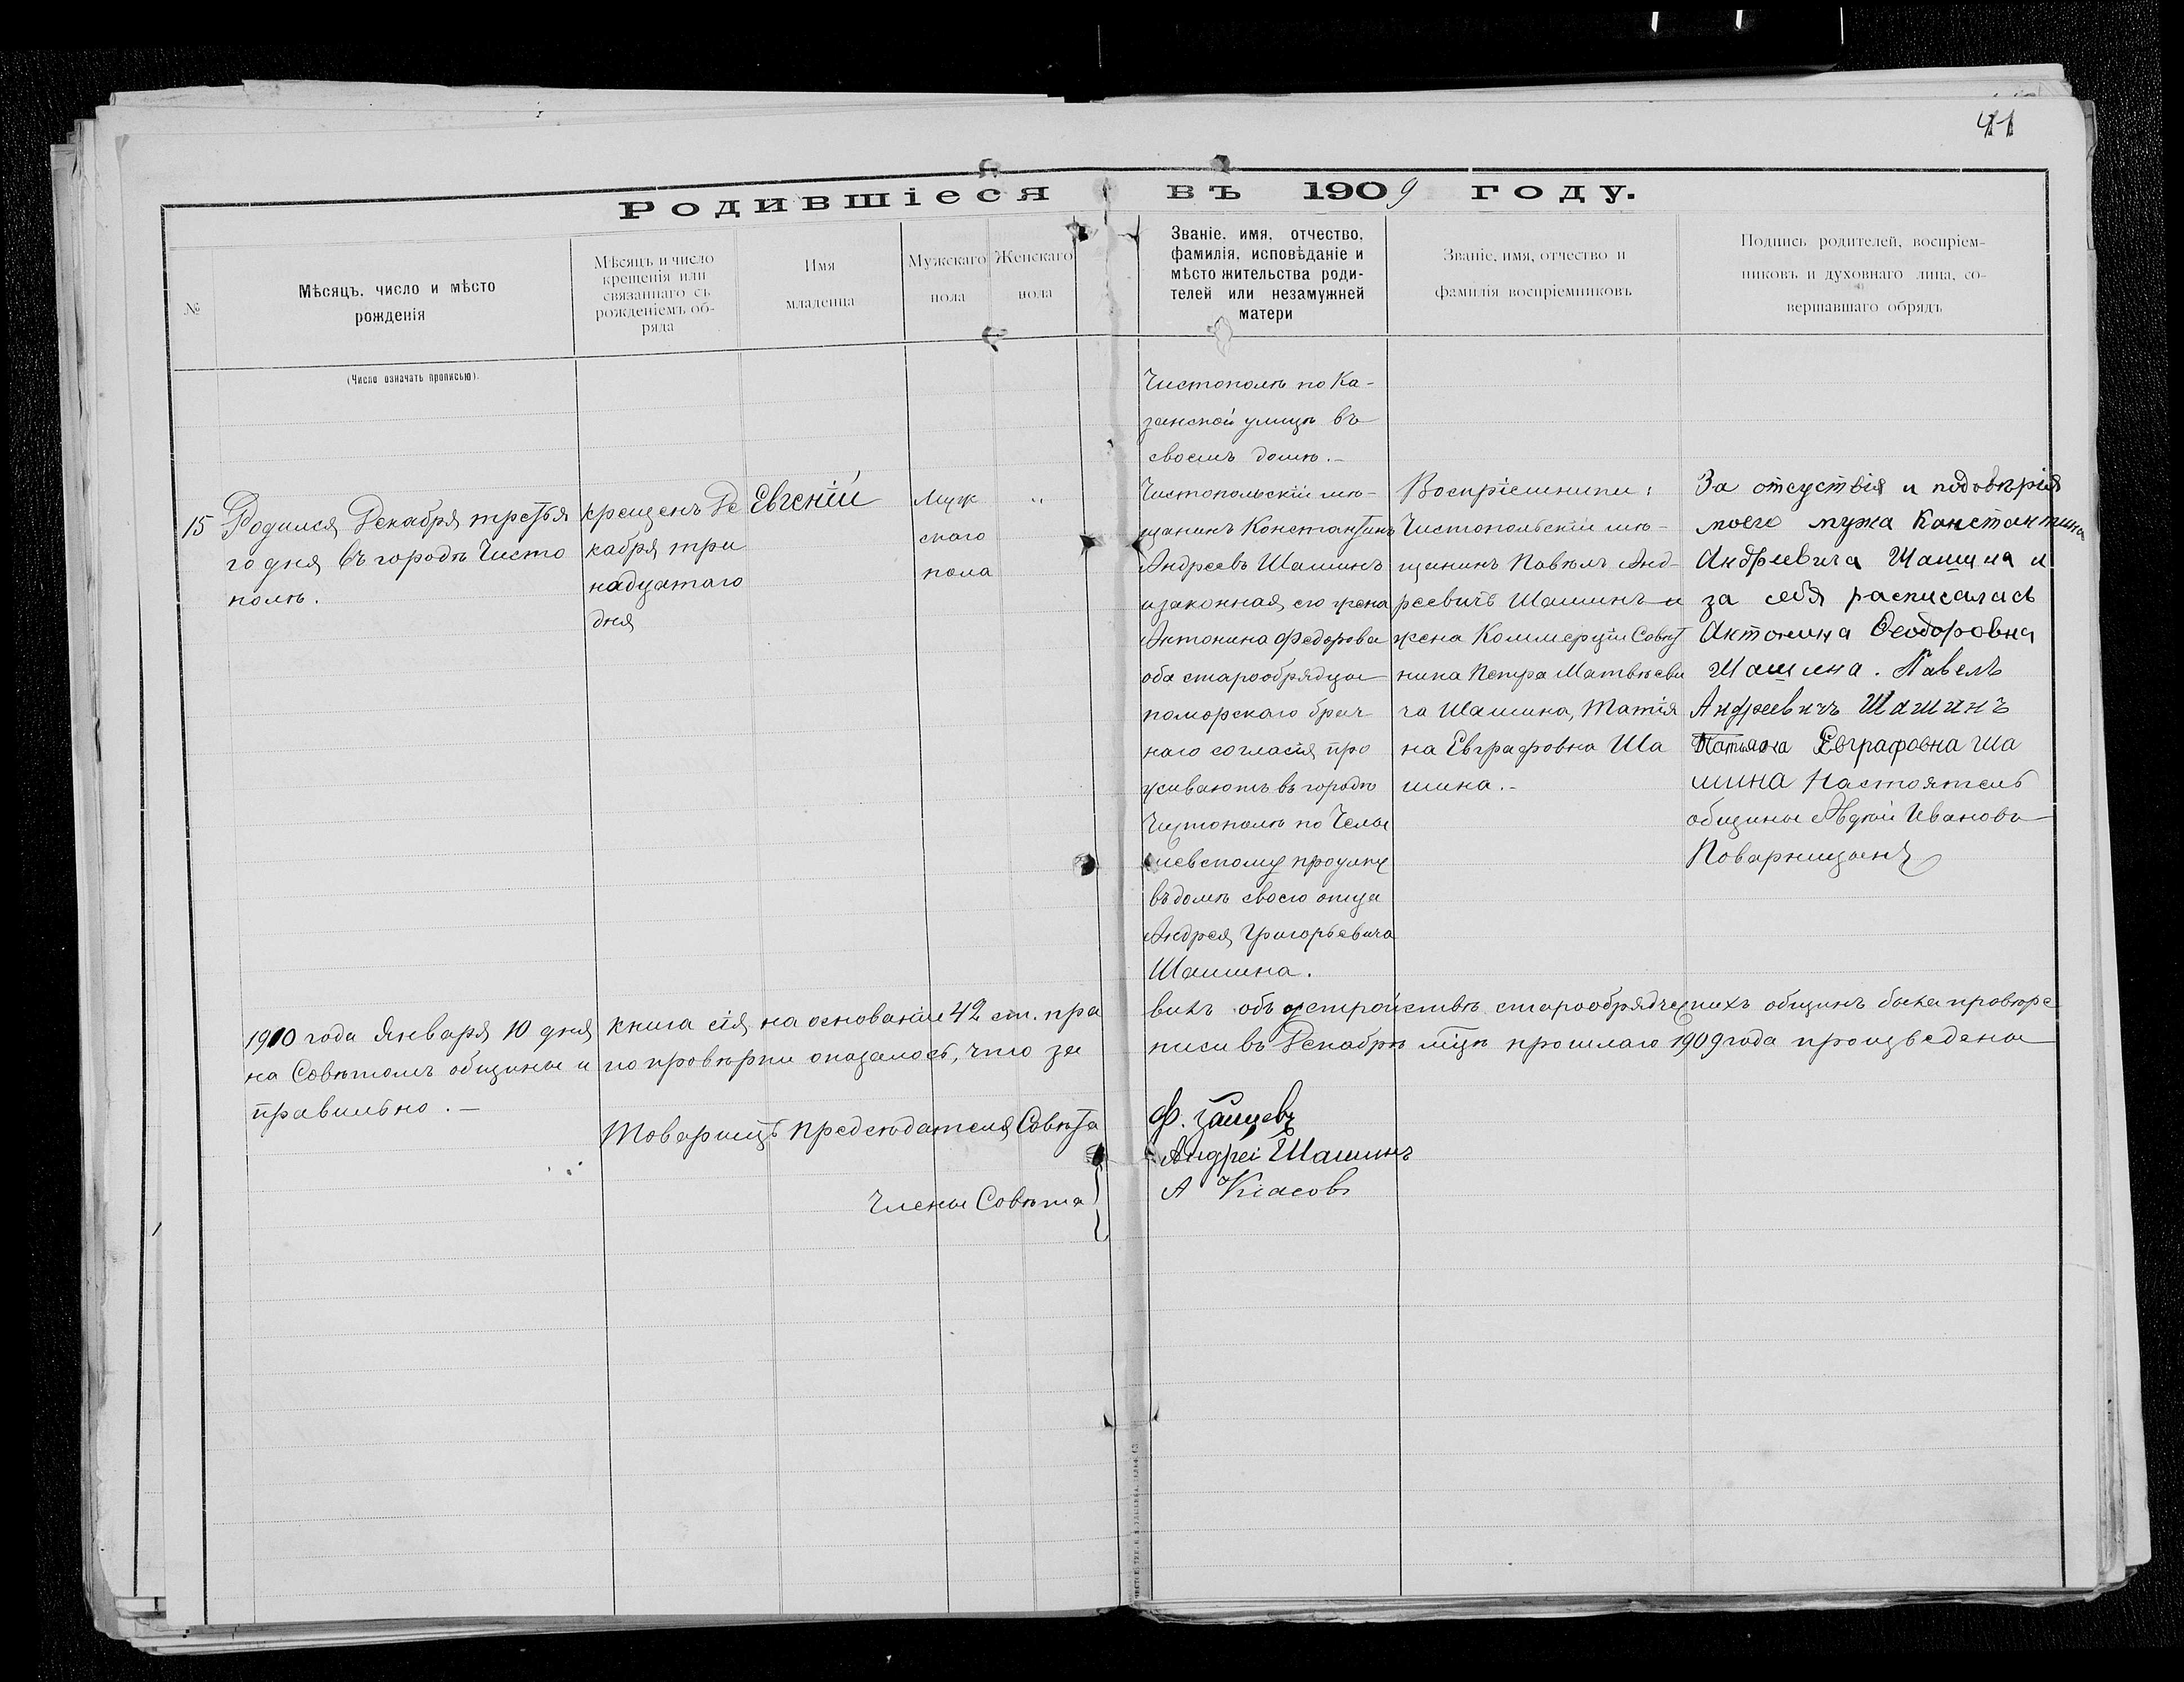 41
Родившіеся въ 1909 году.
№
Мѣсяцъ, число и мѣсто
рожденія
Мѣсяцъ и число
крещенія или
связаннаго съ
рожденіемъ об-
ряда
Имя
младенца
Мужскаго
пола
Женскаго
пола
Званіе, имя, отчество,
фамилія, исповѣданіе и
мѣсто жительства роди-
телей или незамужней
матери
Званіе, имя, отчество и
фамилія воспріемниковъ
Подпись родителей, воспріем-
никовъ и духовнаго лица, со-
вершавшаго обрядъ
(Число означать прописью).
Чистополѣ по Ка-
занской улицѣ въ
своемъ домѣ.-
15
Родился Декабря третья
го дня въ городѣ Чисто
полѣ.
крещенъ Де
кабря три
надцатаго
дня
Евгеній
Муж
скаго
пола
"
Чистопольскій мѣ-
щанинъ Константинъ
Андреевъ Шашинъ
и законная его жена
Антонина Федорова
оба старообрядцы
поморскаго брач
наго согласія про
живаютъ въ городѣ
Чистополѣ по Челы
шевскому проулку
въ домѣ своего отца
Андрея Григорьевича
Шашина.
Воспріемники:
Чистопольскій мѣ-
щанинъ Павелъ Анд-
реевичъ Шашинъ и
жена Коммерціи Совѣт
ника Петра Матвѣеви
ча Шашина, Татія
на Евграфовна Ша
шина.-
За отсуствія и подовѣрія
моего мужа Константина
Андреевича Шашина и
за себя расписалась
Антонина Феодоровна
Шашина. Павелъ
Андреевичъ Шашинъ
Татьяна Евграфовна Ша
шина Настоятель
общины Авдѣй Ивановъ
Поварницынъ
1910 года Января 10 дня книга сія на основаніи 42 ст. пра
вилъ объ устройствѣ старообрядческихъ общинъ была провѣре
на Совѣтомъ общины и по провѣрки оказалось, что за
писи въ Декабрѣ мцѣ прошлаго 1909 года произведены
правильно.-
Товарищъ Предсѣдателя Совѣта
Ф. Зайцевъ
Члены Совѣта
Андрей Шашинъ
А